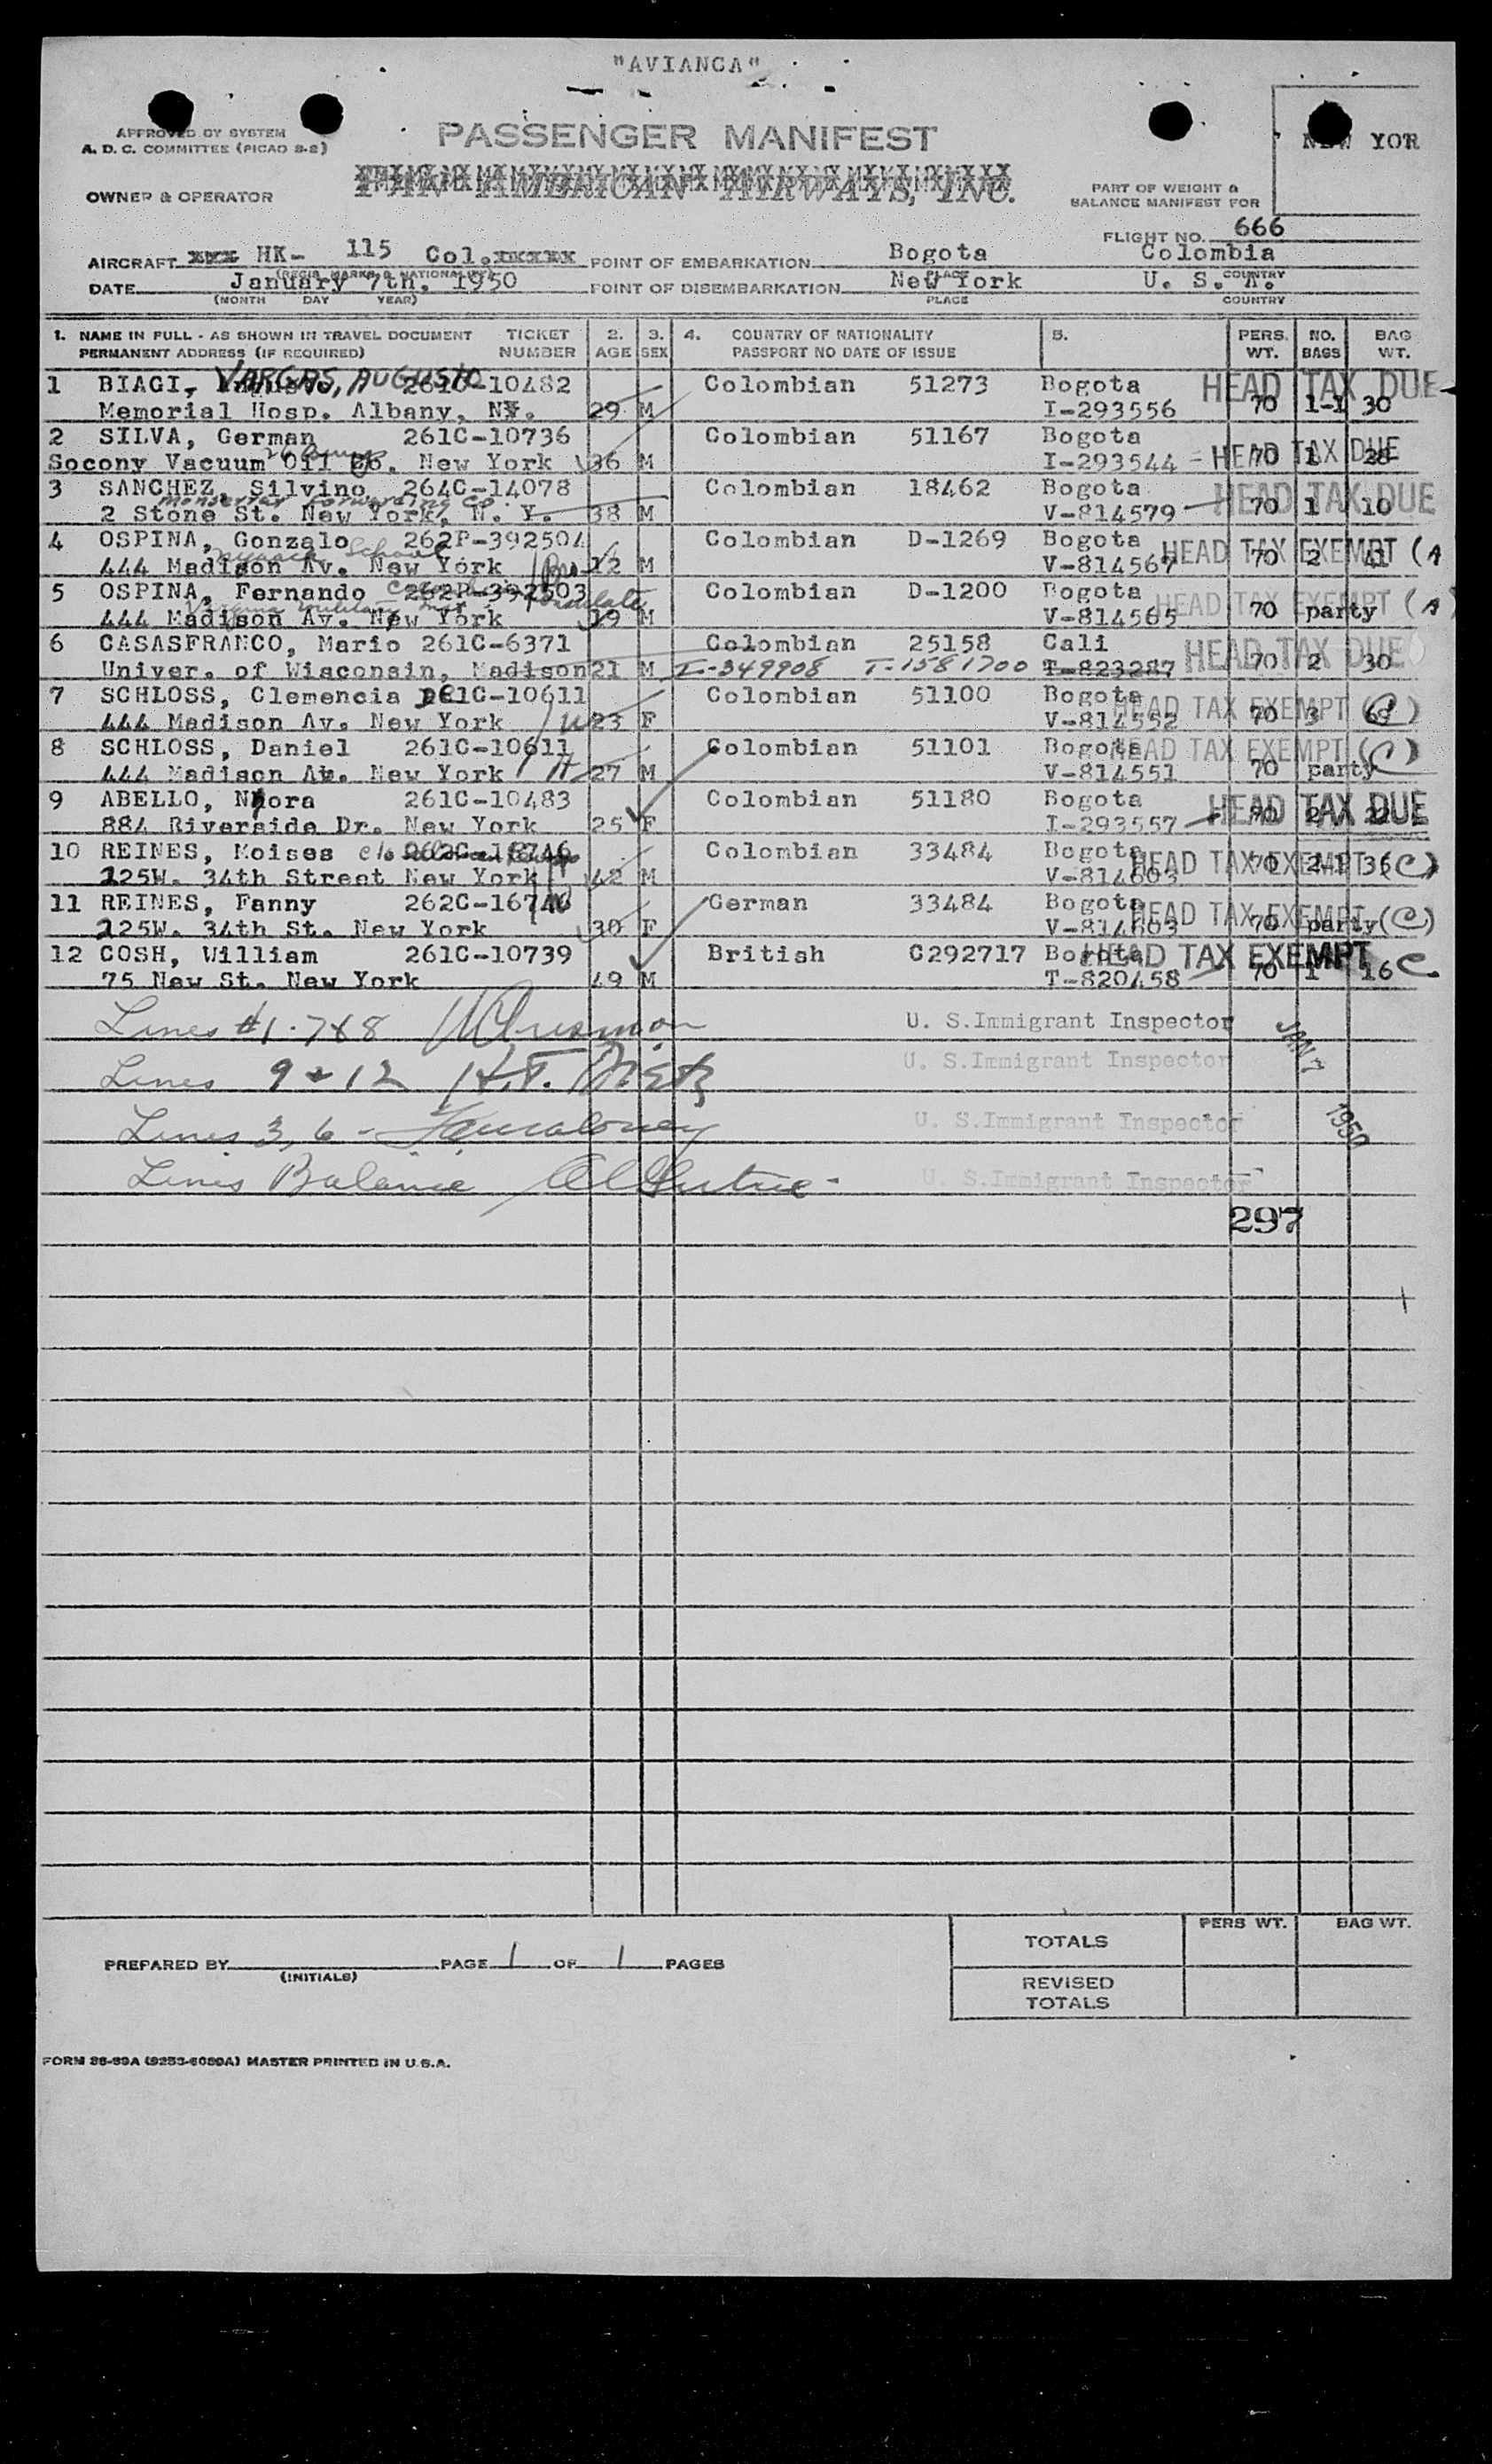 "AVIANCA"
APPROVED BY SYSTEM
A. D. C. COMMITTEE (PICAO 8-2)
PASSENGER MANIFEST
NEW YOR
OWNER & OPERATOR
PAN AMERICAN AIRWAYS, INC.
PART OF WEIGHT &
BALANCE MANIFEST FOR
FLIGHT NO. 666
AIRCRAFT HK- 115 Col. POINT OF EMBARKATION Bogota Colombia
(REGIS. MARKS & NATIONALITY) PLACE COUNTRY
DATE January 7th, 1950 POINT OF DISEMBARKATION New York U. S. A.
(MONTH DAY YEAR) PLACE COUNTRY
1. NAME IN FULL - AS SHOWN IN TRAVEL DOCUMENT TICKET 2. 3. 4. COUNTRY OF NATIONALITY 5. PERS. NO. BAG
PERMANENT ADDRESS (IF REQUIRED) NUMBER AGE SEX PASSPORT NO DATE OF ISSUE WT. BAGS WT.
1 BIAGI, VARGAS, AUGUSTO 261C-10482 Colombian 51273 Bogota HEAD TAX DUE
Memorial Hosp. Albany, NY. 29 M I-293556 70 1-1 30
2 SILVA, German 261C-10736 Colombian 51167 Bogota HEAD TAX DUE
Socony Vacuum Oil Co. New York 36 M I-293544 70 1 28
3 SANCHEZ, Silvino 264C-14078 Colombian 18462 Bogota HEAD TAX DUE
2 Stone St. New York, N. Y. 38 M V-814579 70 1 10
4 OSPINA, Gonzalo 262P-392504 Colombian D-1269 Bogota HEAD TAX EXEMPT (A
School
444 Madison Av. New York 12 M V-814567 70 2 41
5 OSPINA, Fernando 262P-392503 Colombian D-1200 Bogota HEAD TAX EXEMPT (A)
Virginia Military
444 Madison Av. New York 19 M V-814565 70 party
6 CASASFRANCO, Mario 261C-6371 Colombian 25158 Cali HEAD TAX DUE
Univer. of Wisconsin, Madison 21 M I-349908 T-1581700 T-823287 70 2 30
7 SCHLOSS, Clemencia DE 261C-10611 Colombian 51100 Bogota HEAD TAX EXEMPT (C)
444 Madison Av. New York 23 F V-814552 70 3 68
8 SCHLOSS, Daniel 261C-10611 Colombian 51101 Bogota HEAD TAX EXEMPT (C)
444 Madison Av. New York H 27 M V-814551 70 party
9 ABELLO, Nora 261C-10483 Colombian 51180 Bogota HEAD TAX DUE
884 Riverside Dr. New York 25 F I-293557 70 2 22
10 REINES, Moises c/o 262C-16746 Colombian 33484 Bogota HEAD TAX EXEMPT (C)
225W. 34th Street New York 42 M V-814603 70 2-1 36
11 REINES, Fanny 262C-16746 German 33484 Bogota HEAD TAX EXEMPT (C)
225W. 34th St. New York 30 F V-814603 70 party
12 COSH, William 261C-10739 British C292717 Bogota HEAD TAX EXEMPT
75 New St. New York 49 M T-820458 70 1 16 C
Lines #1-7&8 U. S.Immigrant Inspector
Lines 9 & 12 U. S.Immigrant Inspector
JAN 7 1950
Lines 3, 6 - U. S.Immigrant Inspector
Lines Balance U. S.Immigrant Inspector
297
TOTALS PERS WT. BAG WT.
PREPARED BY PAGE 1 OF 1 PAGES
(INITIALS)
REVISED
TOTALS
FORM 26-59A (9253-6059A) MASTER PRINTED IN U.S.A.